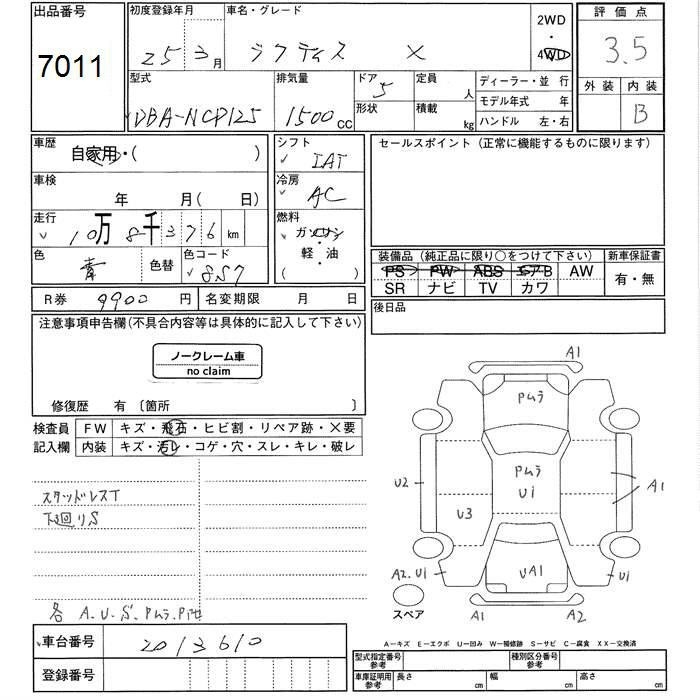 出品番号
7011
初度登録年月
25 3月
車名・グレード
ラクティス X
2WD
・
4WD
評価点
3.5
外装 内装
B
型式
DBA-NCP125
排気量
1500 CC
ドア
5
形状
定員
人
積載
kg
ディーラー・並行
モデル年式 年
ハンドル 左・右
車歴
自家用・( )
車検
年 月( 日)
走行
10万8千376km
色
青
色替
色コード
8S7
シフト
IAT
冷房
AC
燃料
ガソリン
軽・油
( )
セールスポイント(正常に機能するものに限ります)
装備品(純正品に限り○をつけて下さい)
新車保証書
PS PW ABS エアB AW
SR ナビ TV カワ
有・無
R券 9900 円
名変期限 月 日
後日品
注意事項申告欄(不具合内容等は具体的に記入して下さい)
ノークレーム車
no claim
修復歴 有〔箇所 〕
検査員
記入欄
FW キズ・飛石・ヒビ割・リペア跡・×要
内装 キズ・汚レ・コゲ・穴・スレ・キレ・破レ
スタッドレスT
下廻りS
各 A.U.S.Pムラ.
A1
Pムラ
Pムラ
U1
U2
U3
A1
A2.U1
UA1
U1
A1
A2
スペア
A-キズ E-エクボ U-凹み W-補修跡 S-サビ C-腐食 XX-交換済
車台番号
2013610
登録番号
型式指定番号
参考
種別区分番号
参考
車庫証明用
参考
長さ cm
幅 cm
高さ cm